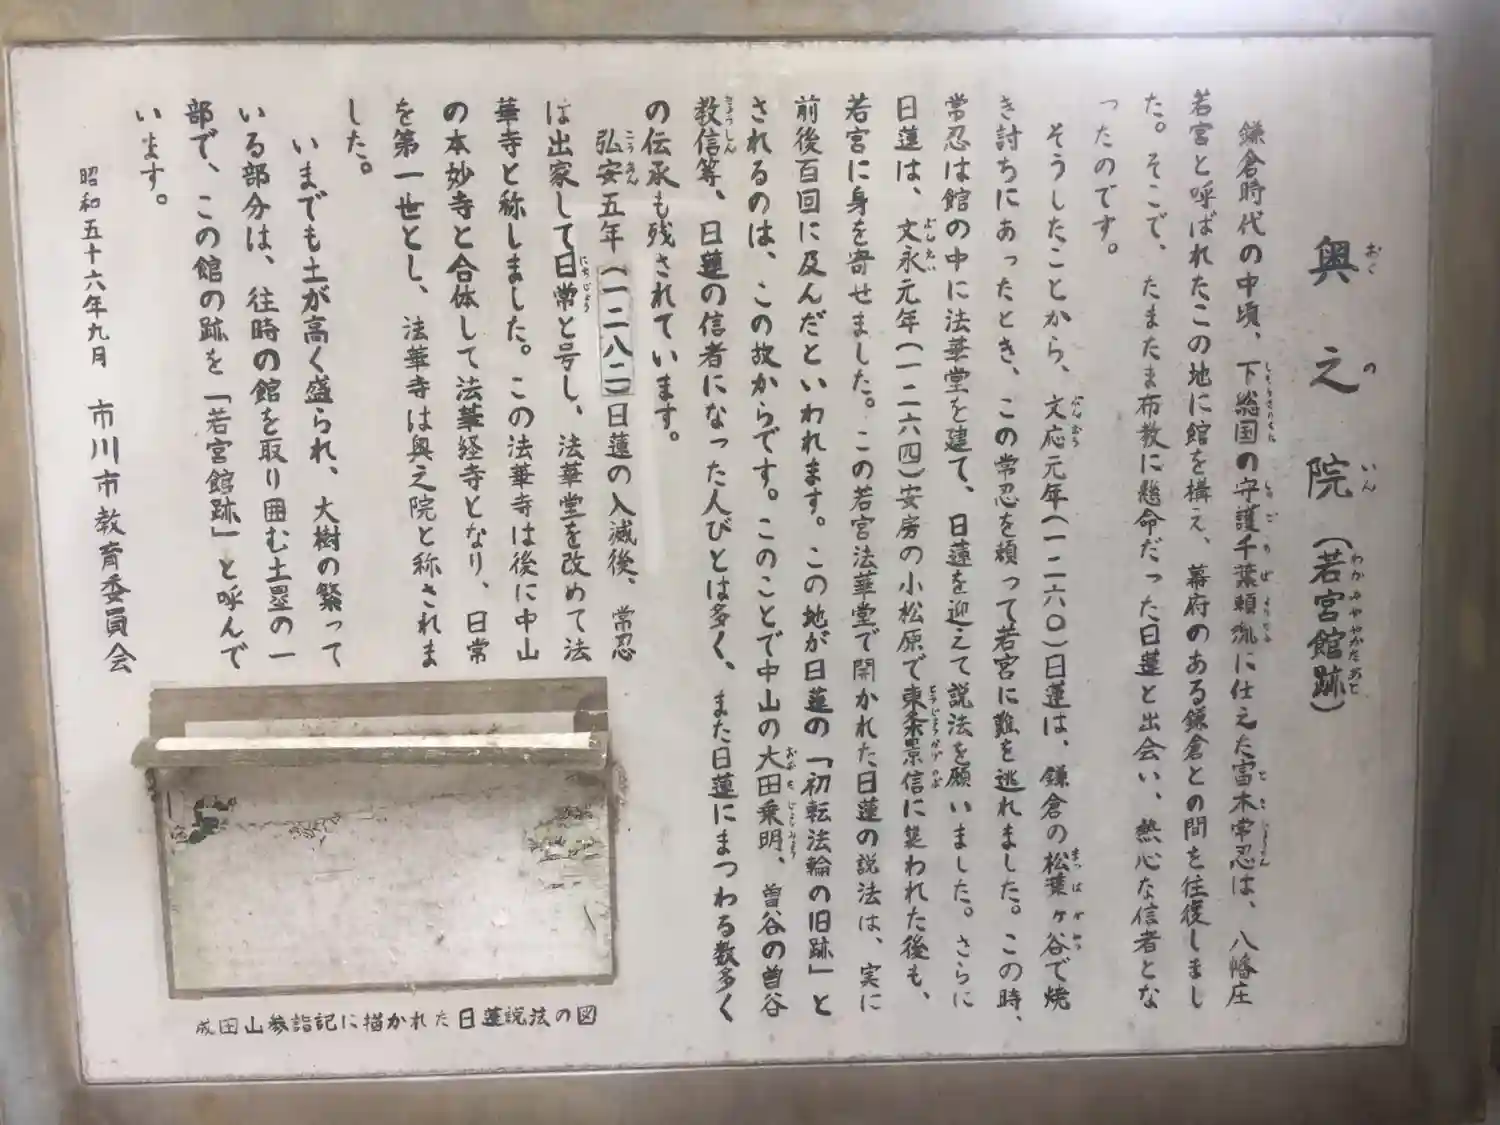 奥之院(若宮館跡)
鎌倉時代の中頃、下総国の守護千葉頼胤に仕えた富木常忍は、八幡庄
若宮と呼ばれたこの地に館を構え、幕府のある鎌倉との間を往復しまし
た。そこで、たまたま布教に懸命だった日蓮と出会い、熱心な信者とな
ったのです。
そうしたことから、文応元年(一二六〇)日蓮は、鎌倉の松葉ヶ谷で焼
き討ちにあったとき、この常忍を頼って若宮に難を逃れました。この時、
常忍は館の中に法華堂を建て、日蓮を迎えて説法を願いました。さらに
日蓮は、文永元年(一二六四)安房の小松原で東条景信に襲われた後も、
若宮に身を寄せました。この若宮法華堂で開かれた日蓮の説法は、実に
前後百回に及んだといわれます。この地が日蓮の「初転法輪の旧跡」と
されるのは、この故からです。このことで中山の大田乗明、曽谷の曽谷
教信等、日蓮の信者になった人びとは多く、また日蓮にまつわる数多く
の伝承も残されています。
弘安五年(一二八二)日蓮の入滅後、常忍
は出家して日常と号し、法華堂を改めて法
華寺と称しました。この法華寺は後に中山
の本妙寺と合体して法華経寺となり、日常
を第一世とし、法華寺は奥之院と称されま
した。
いまでも土が高く盛られ、大樹の繁って
いる部分は、往時の館を取り囲む土塁の一
部で、この館の跡を「若宮館跡」と呼んで
います。
昭和五十六年九月 市川市教育委員会
成田山参詣記に描かれた日蓮説法の図